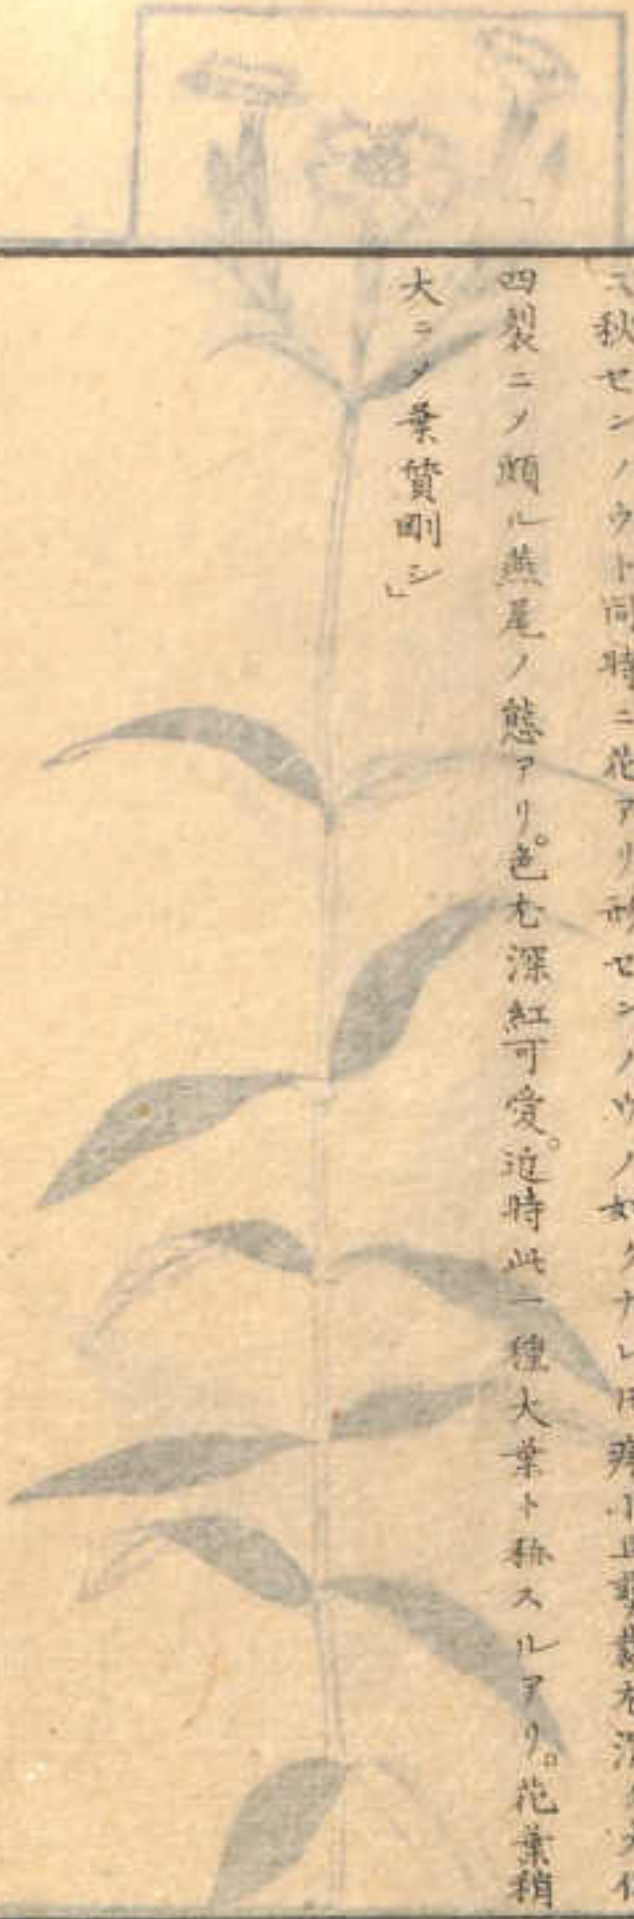 秋センノウト同時ニ花アリ形センノウノ如クナレ𪜈瘠小且
四裂ニ〆頗ル燕尾ノ態アリ。色尤深紅可愛。近時此一種大葉ト称スルアリ。花葉稍
大ニ〆葉質剛シ」